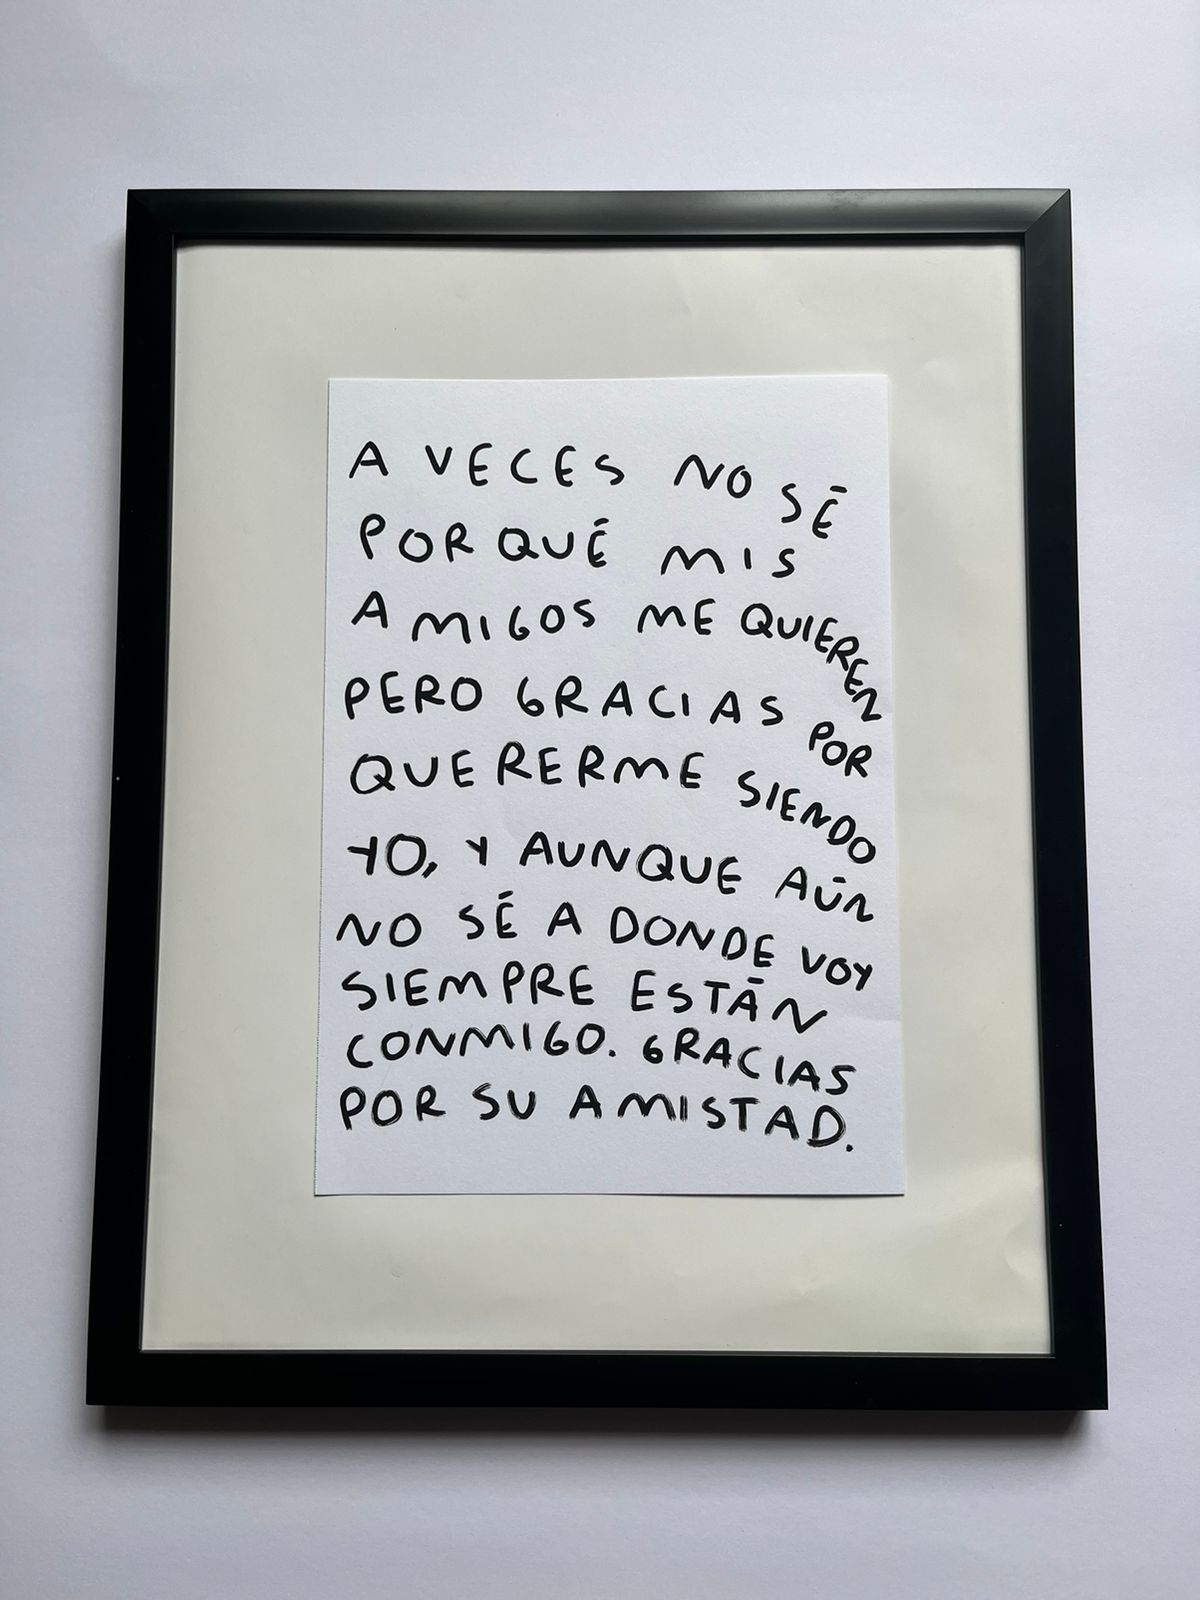 A VECES NO SÉ
POR QUÉ MIS
AMIGOS ME QUIEREN
PERO GRACIAS POR
QUERERME SIENDO
YO, Y AUNQUE AÚN
NO SÉ A DONDE VOY
SIEMPRE ESTÁN
CONMIGO. GRACIAS
POR SU AMISTAD.